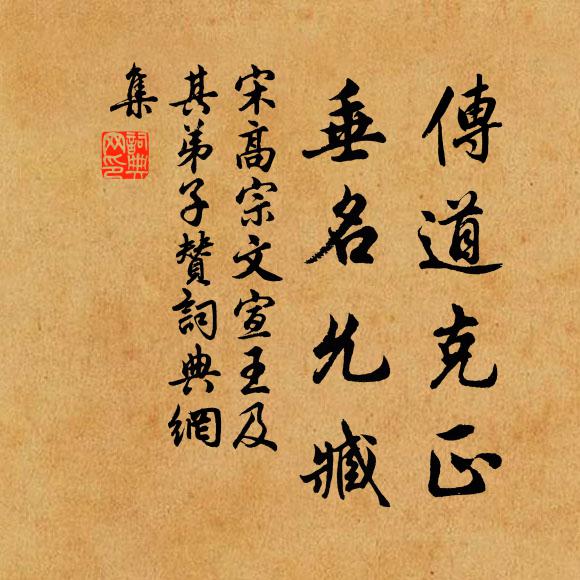 傳道克正
垂名允臧
宋高宗文宣王及
其弟子贊詞典網
集
詞典
网印